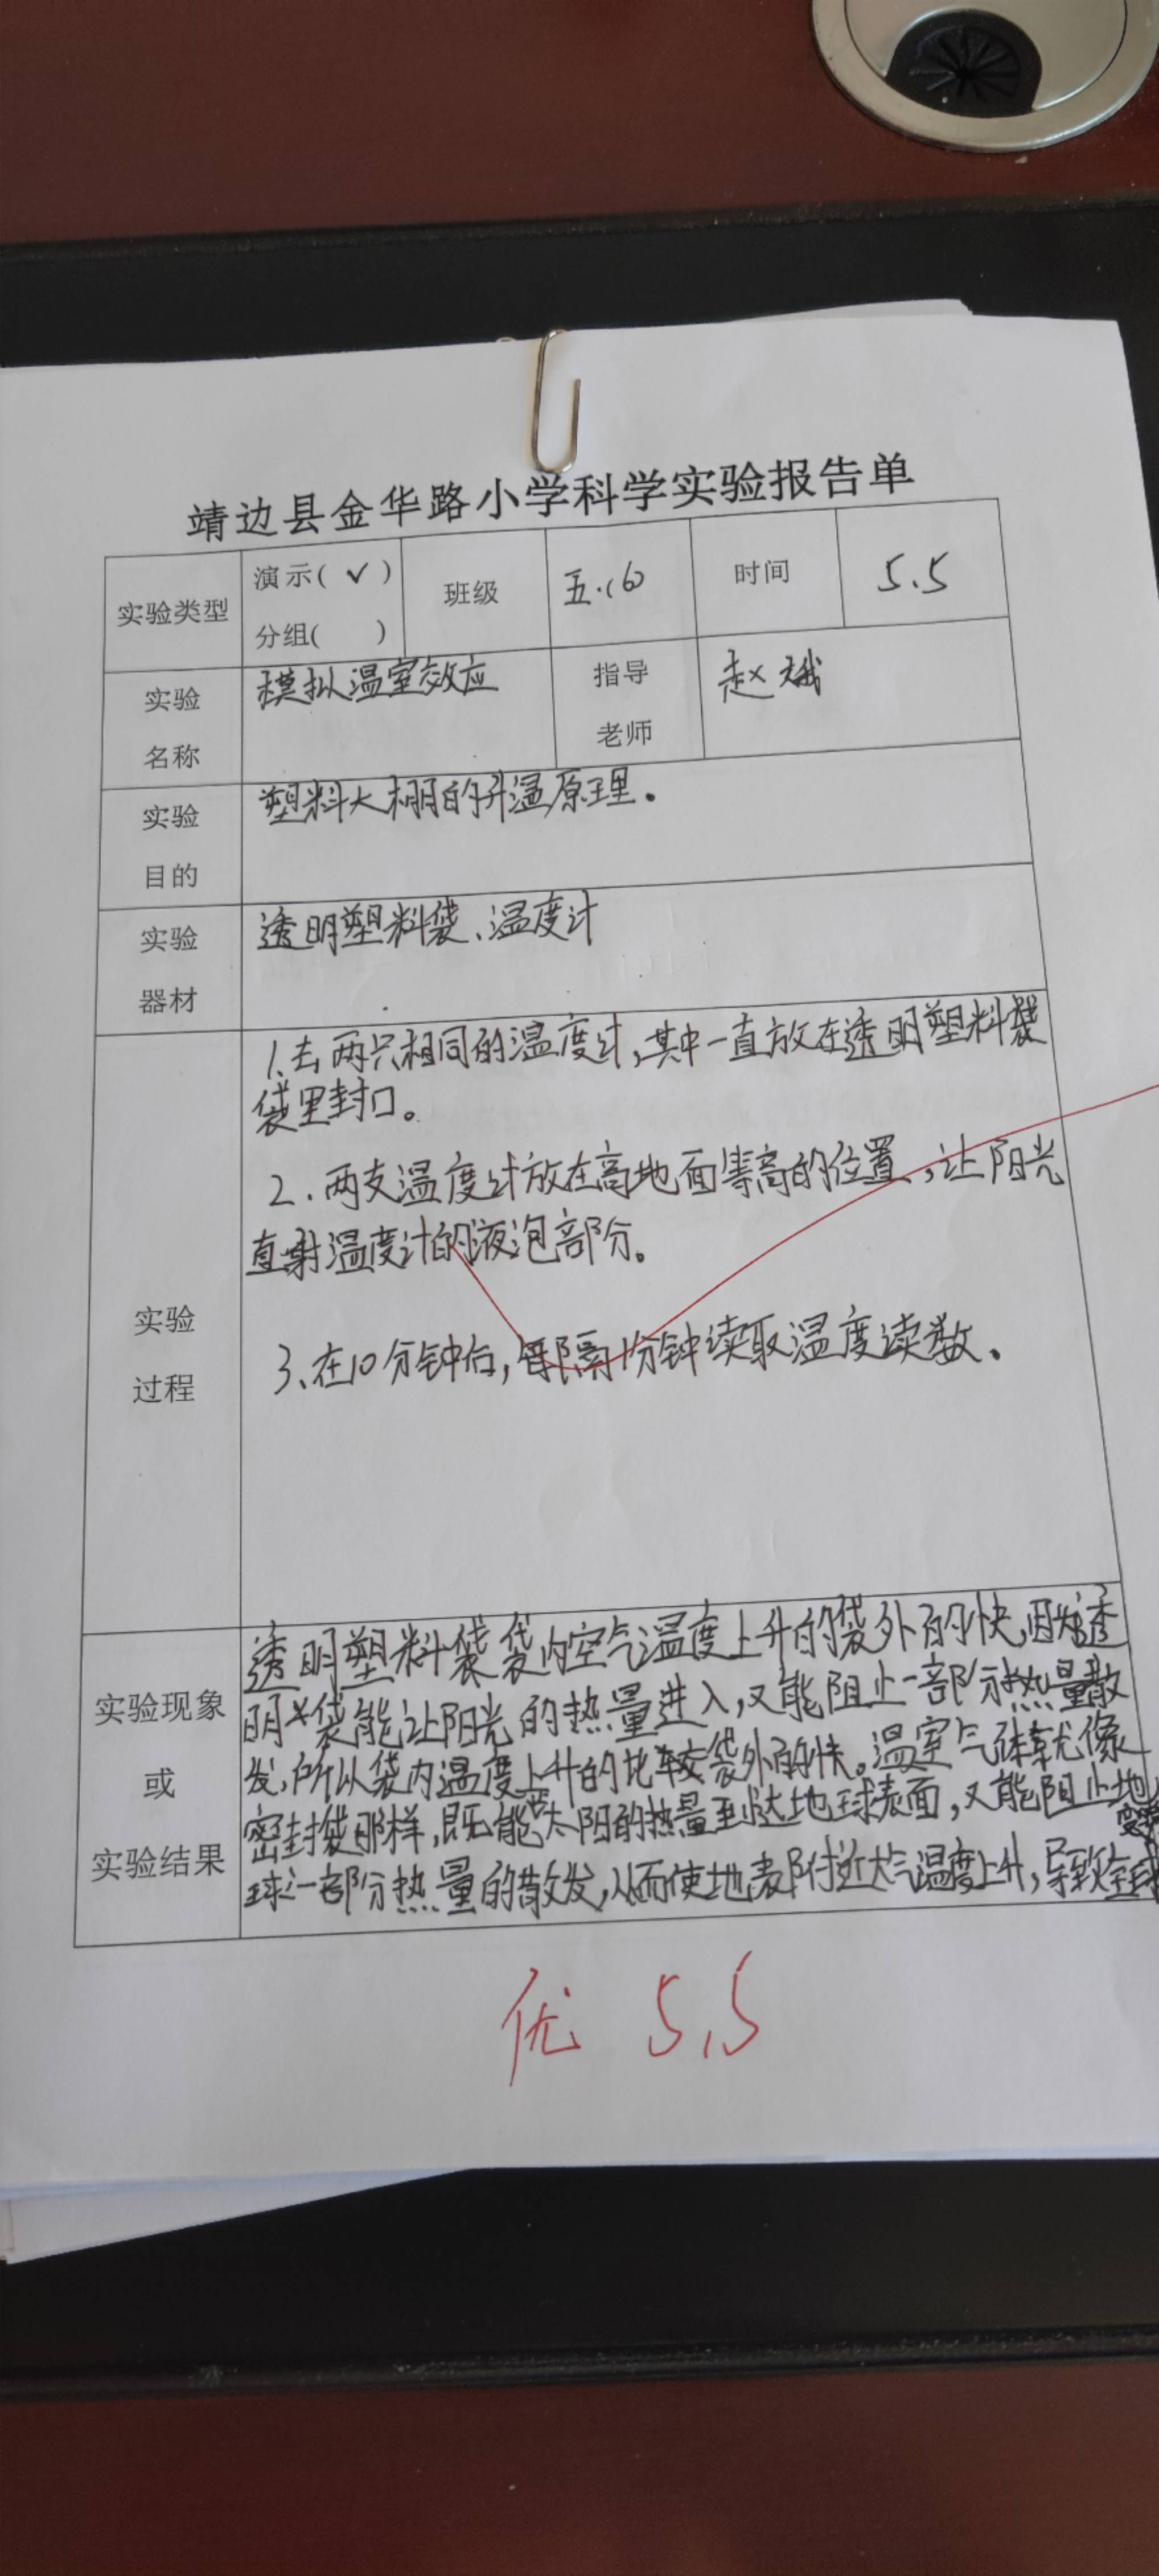 靖边县金华路小学科学实验报告单
实验类型 演示(✓) 分组( ) 班级 五.(6) 时间 5.5
实验名称 模拟温室效应 指导老师 赵娥
实验目的 塑料大棚的升温原理。
实验器材 透明塑料袋、温度计
实验过程
1.去两只相同的温度计,其中一直放在透明塑料袋
袋里封口。
2.两支温度计放在高地面等高的位置,让阳光
直射温度计的液泡部分。
3、在10分钟后,每隔1分钟读取温度读数、
实验现象
或
实验结果
透明塑料袋袋内空气温度上升的袋外的快,因为透
明袋能让阳光的热量进入,又能阻止一部分热量散
发,所以袋内温度上升的比较袋外的快。温室气体就像
密封袋那样,既能让太阳的热量到达地球表面,又能阻止地
球一部分热量的散发,从而使地表附近大气温度上升,导致全球
变暖
优 5.5